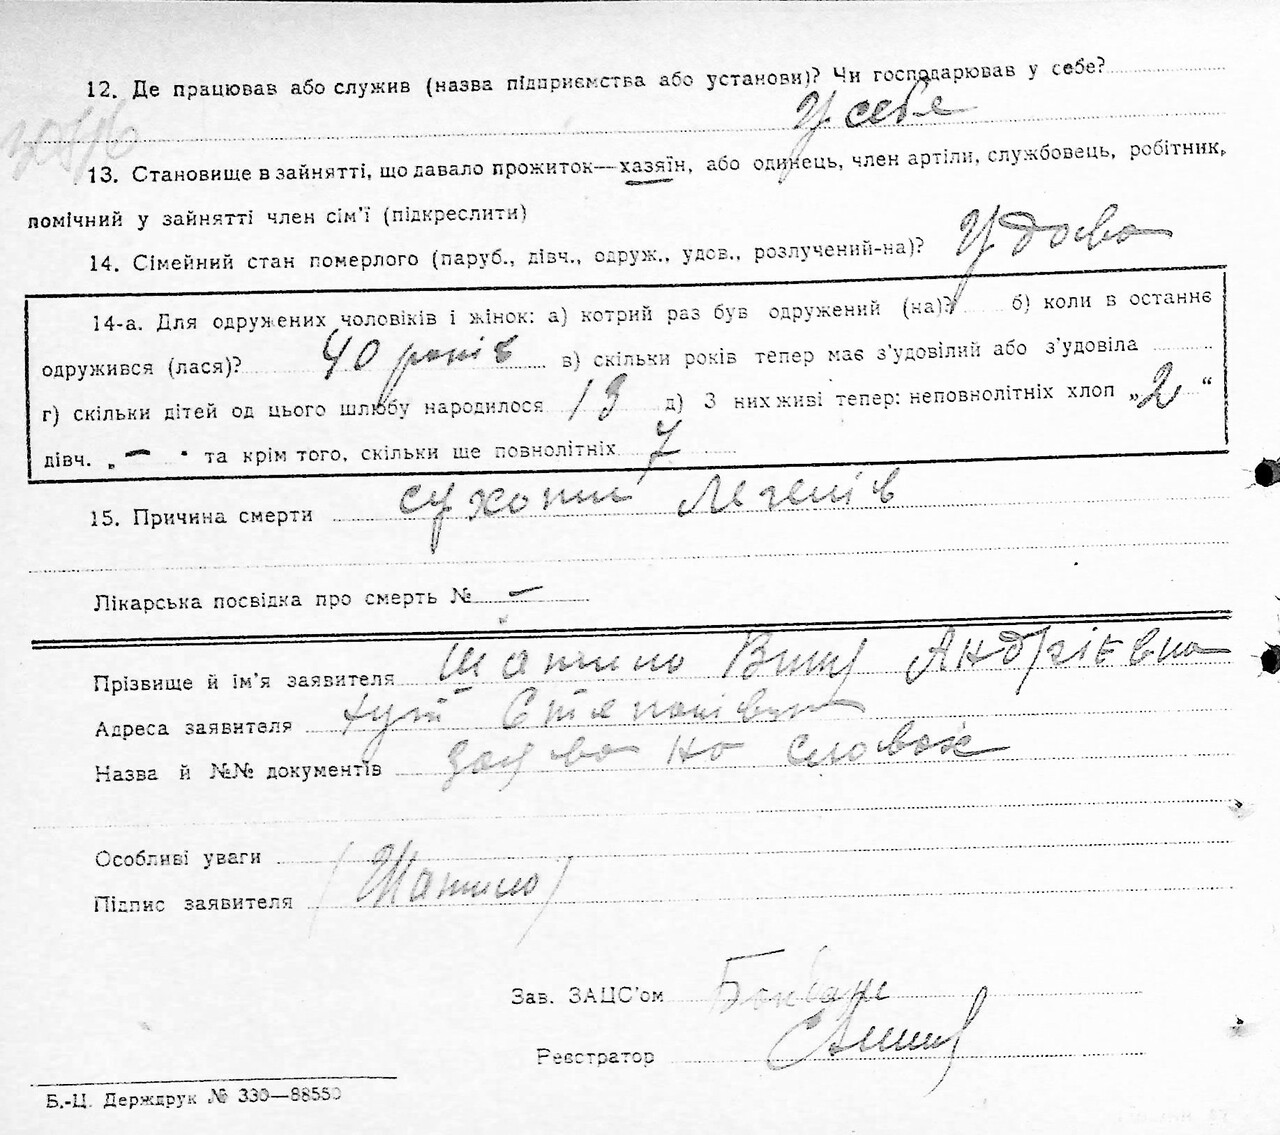 12. Де працював або служив (назва підприємства або установи)? Чи господарював у себе?
У себе
13. Становище в зайнятті, що давало прожиток—хазяїн, або одинець, член артіли, службовець, робітник,
помічний у зайнятті член сім'ї (підкреслити)
14. Сімейний стан померлого (паруб., дівч., одруж., удов., розлучений-на)? Удова
14-а. Для одружених чоловіків і жінок: а) котрий раз був одружений (на)? б) коли в останнє
одружився (лася)? 40 років в) скільки років тепер має з'удовілий або з'удовіла
г) скільки дітей од цього шлюбу народилося 13 д) З них живі тепер: неповнолітніх хлоп „2“
дівч. „—“ та крім того, скільки ще повнолітніх 7
15. Причина смерти сухоти Легенів
Лікарська посвідка про смерть № —
Прізвище й ім'я заявителя Андрієвна
Адреса заявителя хут
Назва й №№ документів заява на словах
Особливі уваги
Підпис заявителя
Зав. ЗАЦС'ом
Реєстратор
Б.-Ц. Держдрук № 330—88550